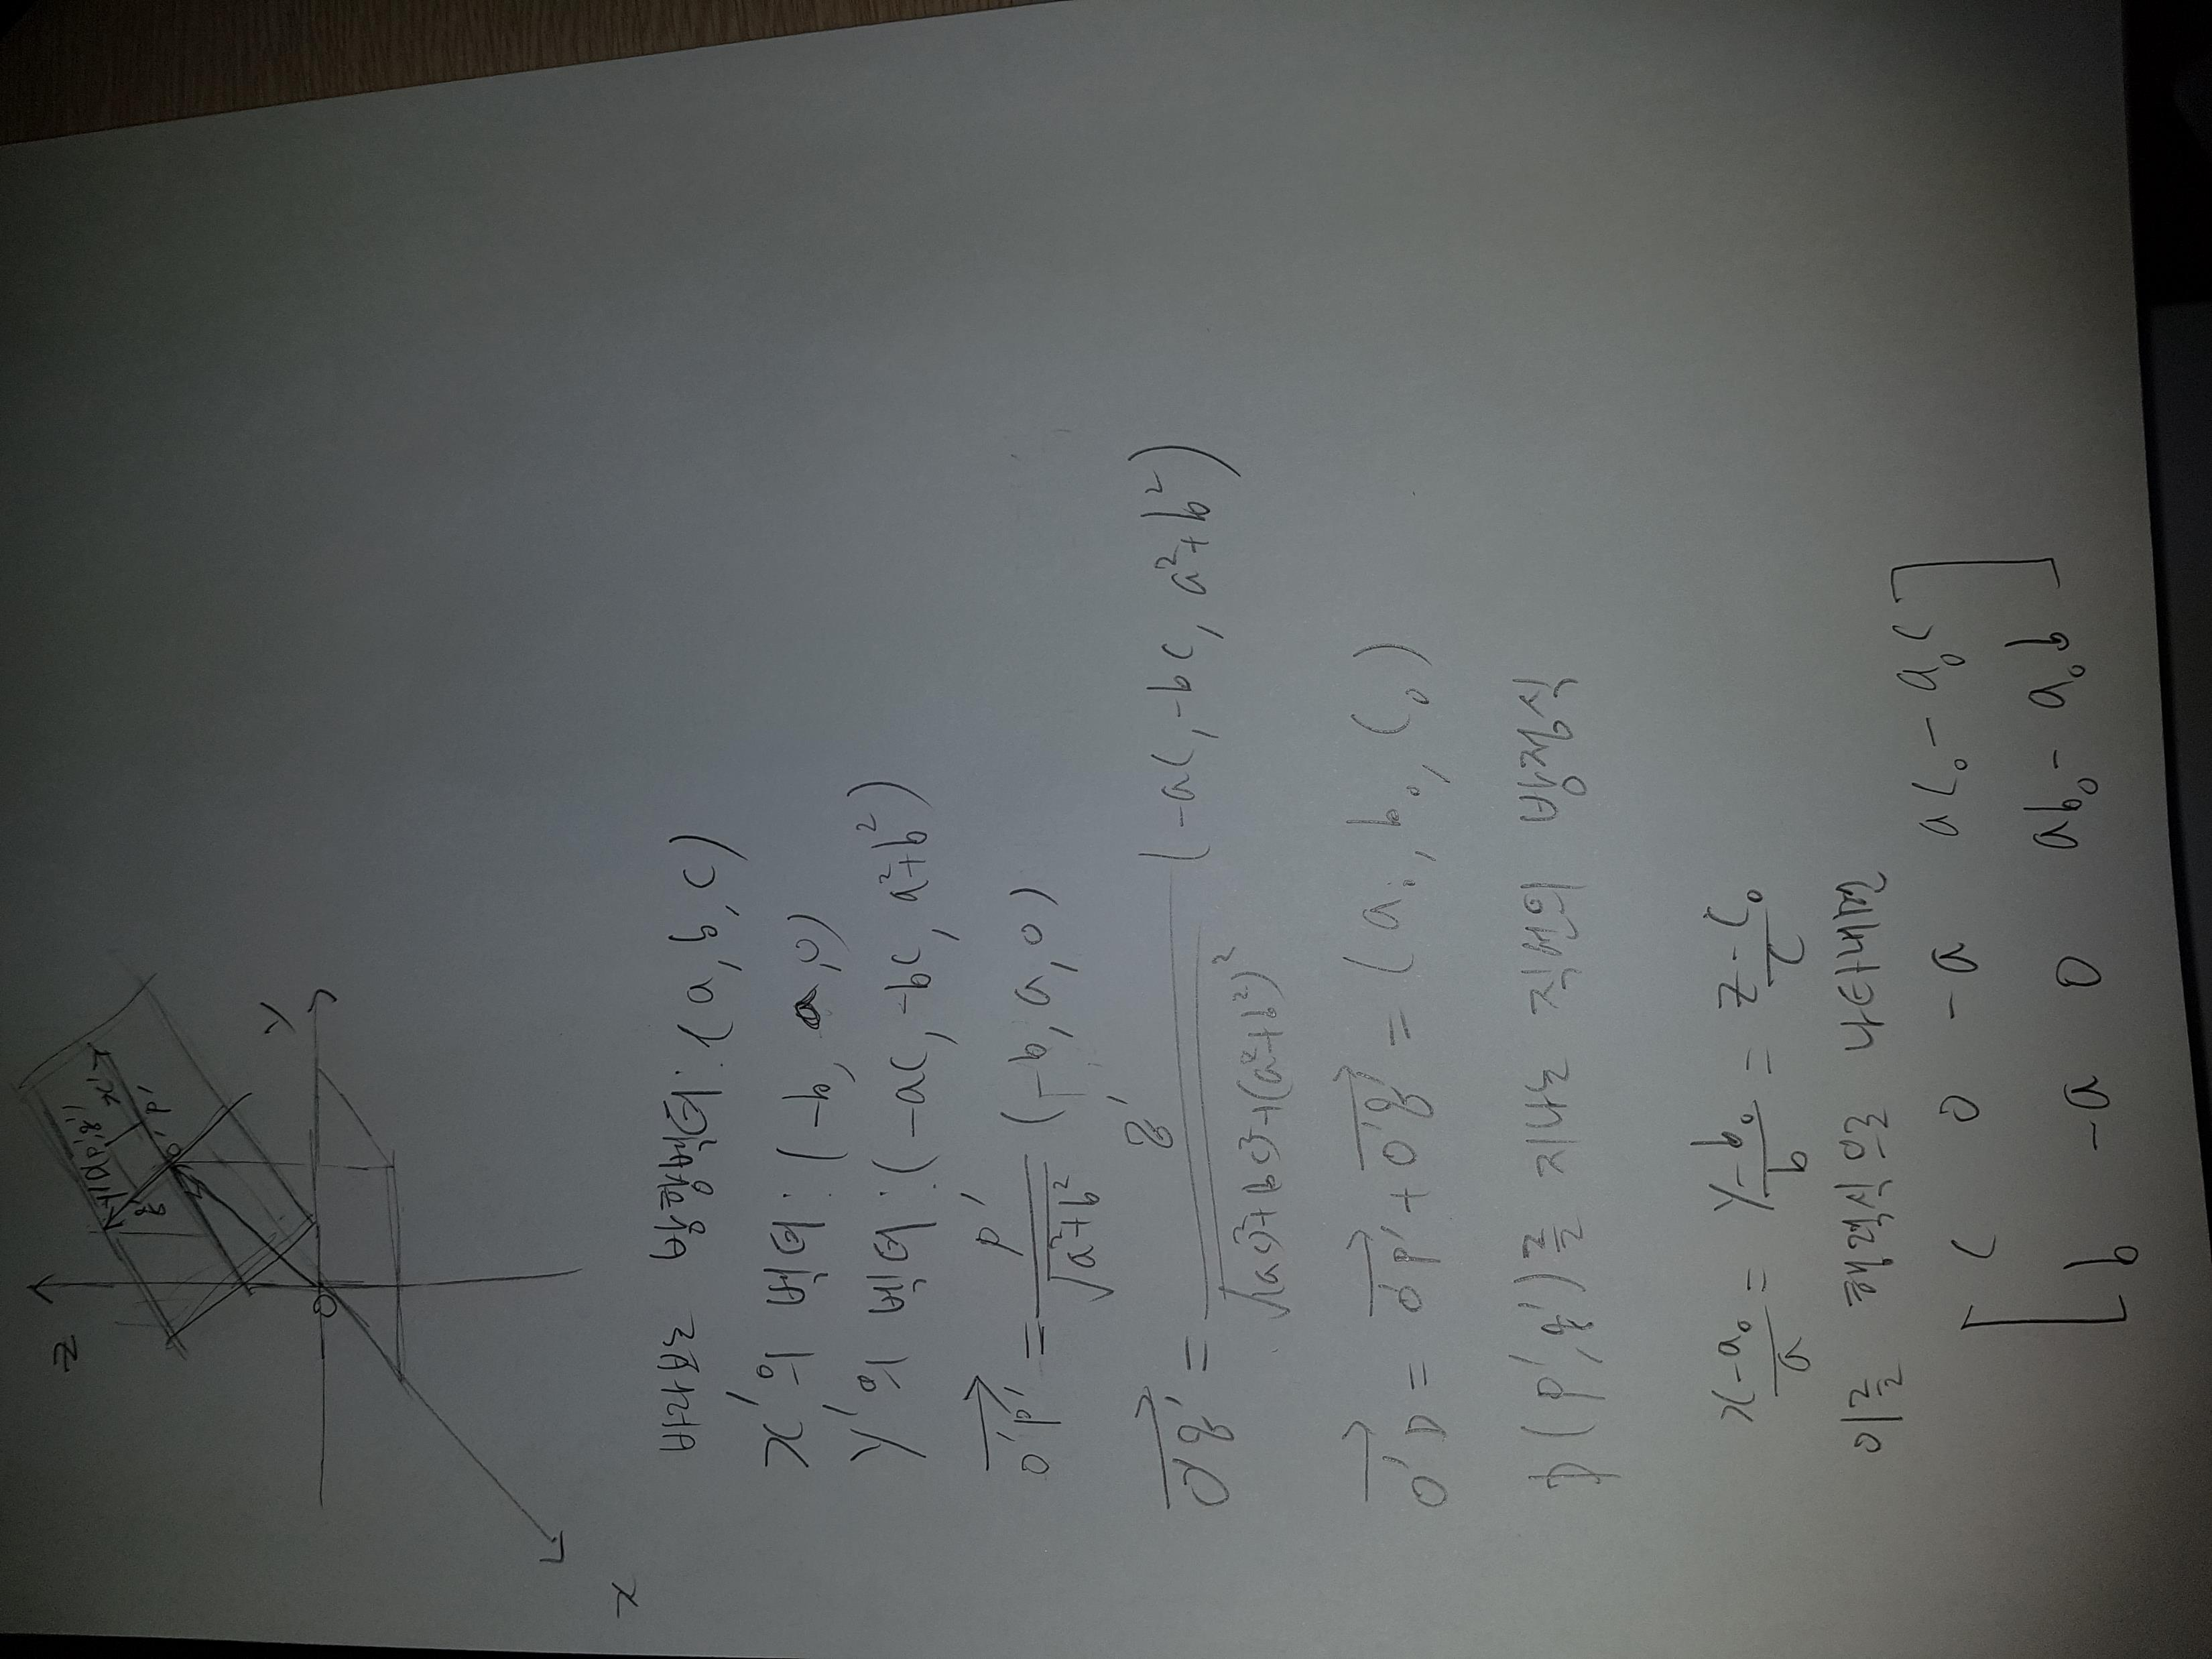 z
y
x
O
x'
p'
O'
D(p', q')
시각상 방향벡터 : (a, b, c)
x'의 벡터 : (-b, a, 0)
y'의 벡터 : (-ac, -bc, a²+b²)
O'p' = p'/√(a²+b²) (-b, a, 0)
O'q' = q'/√((ac)²+(bc)²+(a²+b²)²) (-ac, -bc, a²+b²)
O'D = O'p' + O'q' = (a₀, b₀, c₀)
D(p', q')를 지나는 직선의 방정식
(x-a₀)/a = (y-b₀)/b = (z-c₀)/c
이를 행렬식으로 나타내면
[ c 0 -a ac₀-a₀c ]
[ b -a 0 ab₀-a₀b ]